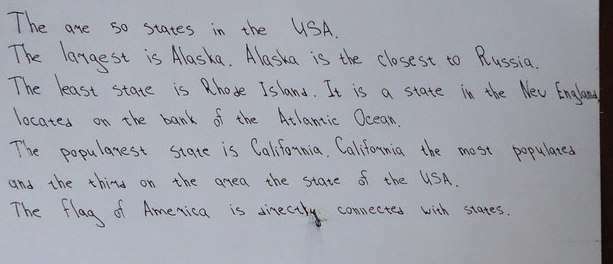 The are 50 states in the USA.
The largest is Alaska. Alaska is the closest to Russia.
The least state is Rhode Island. It is a state in the New England,
located on the bank of the Atlantic Ocean.
The popularest state is California. California the most populated
and the third on the area the state of the USA.
The flag of America is directly connected with states.